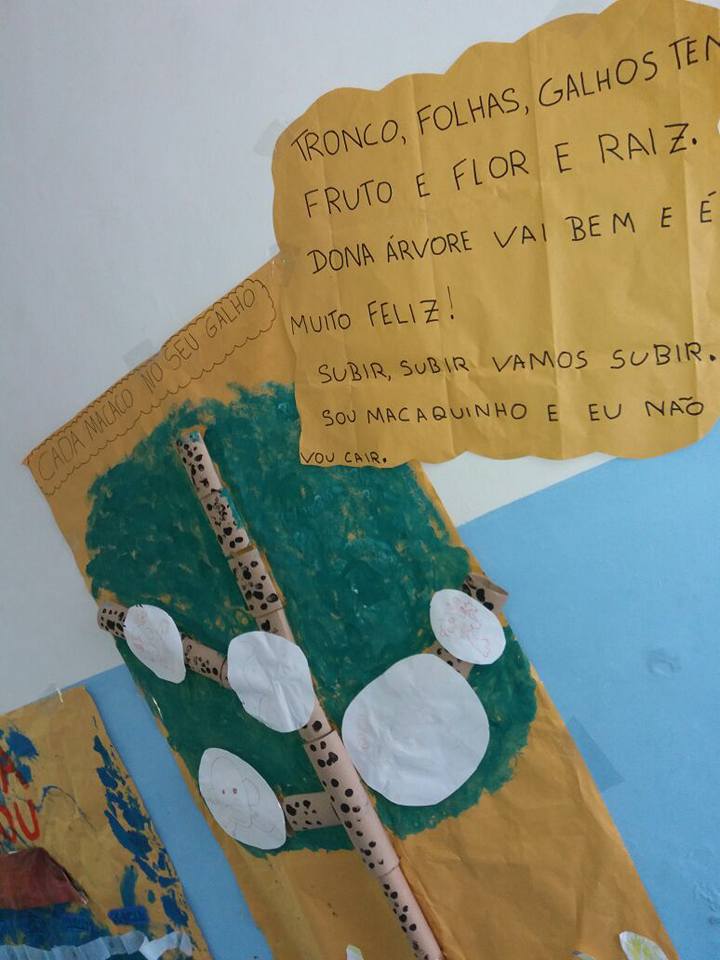 TRONCO, FOLHAS, GALHOS TEM
FRUTO E FLOR E RAIZ.
DONA ÁRVORE VAI BEM E É
MUITO FELIZ!
SUBIR, SUBIR VAMOS SUBIR.
SOU MACAQUINHO E EU NÃO
VOU CAIR.
CADA MACACO NO SEU GALHO
A
OU